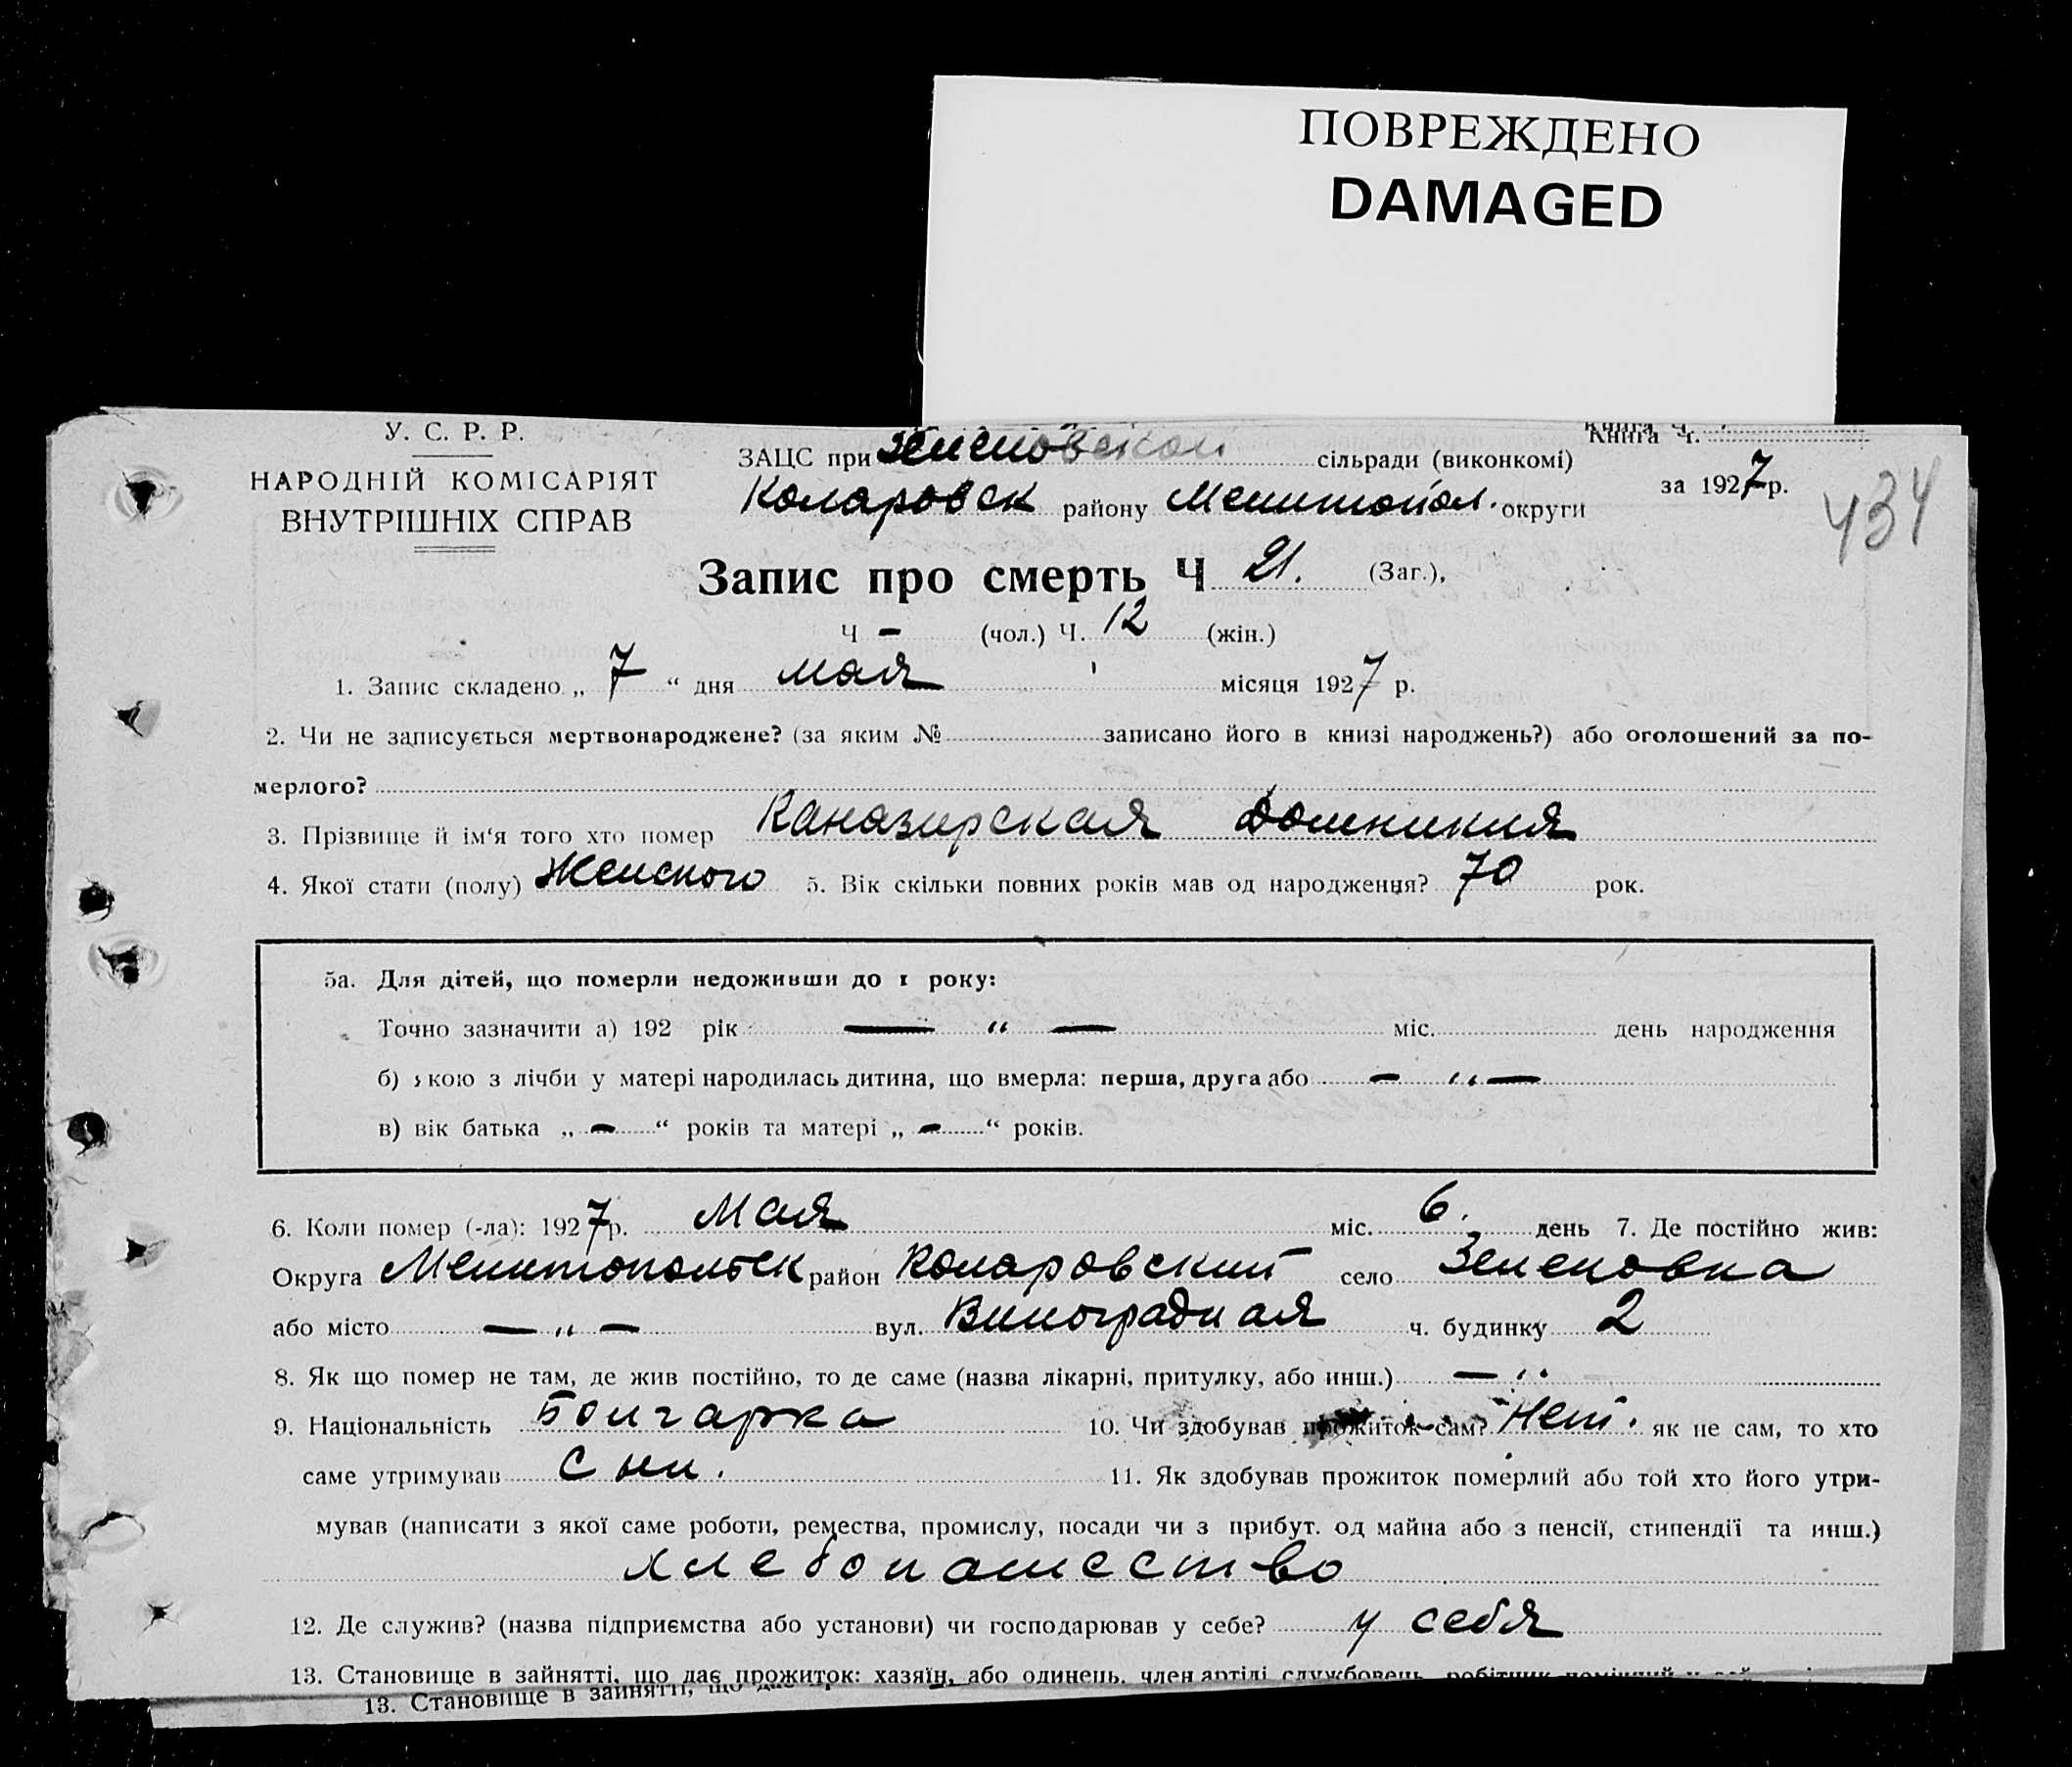 ПОВРЕЖДЕНО
DAMAGED
У. С. Р. Р.
НАРОДНІЙ КОМІСАРІЯТ
ВНУТРІШНІХ СПРАВ
Книга Ч.
ЗАЦС при Зеленовском сільради (виконкомі)
за 1927 р.
434
Коларовск району Мелитопол. округи
Запис про смерть Ч 21. (Заг.),
Ч — (чол.) Ч. 12 (жін.)
1. Запис складено „ 7 “ дня мая місяця 1927 р.
2. Чи не записується мертвонароджене? (за яким № записано його в книзі народжень?) або оголошений за по-
мерлого?
3. Прізвище й ім‘я того хто помер Каназирская Домникия
4. Якої стати (полу) Женского 5. Вік скільки повних років мав од народження? 70 рок.
5а. Для дітей, що померли недоживши до 1 року:
Точно зазначити а) 192 рік — „ — міс. день народження
б) якою з лічби у матері народилась дитина, що вмерла: перша, друга або — „ —
в) вік батька „ — “ років та матері „ — “ років.
6. Коли помер (-ла): 1927 р. Мая міс. 6. день 7. Де постійно жив:
Округа Мелитопольск район Коларовский село Зеленовка
або місто — „ — вул. Виноградная ч. будинку 2
8. Як що помер не там, де жив постійно, то де саме (назва лікарні, притулку, або инш.) — „
9. Національність Болгарка 10. Чи здобував прожиток сам? Нет. як не сам, то хто
саме утримував Сын. 11. Як здобував прожиток померлий або той хто його утри-
мував (написати з якої саме роботи, ремества, промислу, посади чи з прибут. од майна або з пенсії, стипендії та инш.)
хлебопашество
12. Де служив? (назва підприємства або установи) чи господарював у себе? у себя
13. Становище в зайнятті, що дає прожиток: хазяїн, або одинець, член артілі службовець, робітник
13. Становище в зайнятті, що